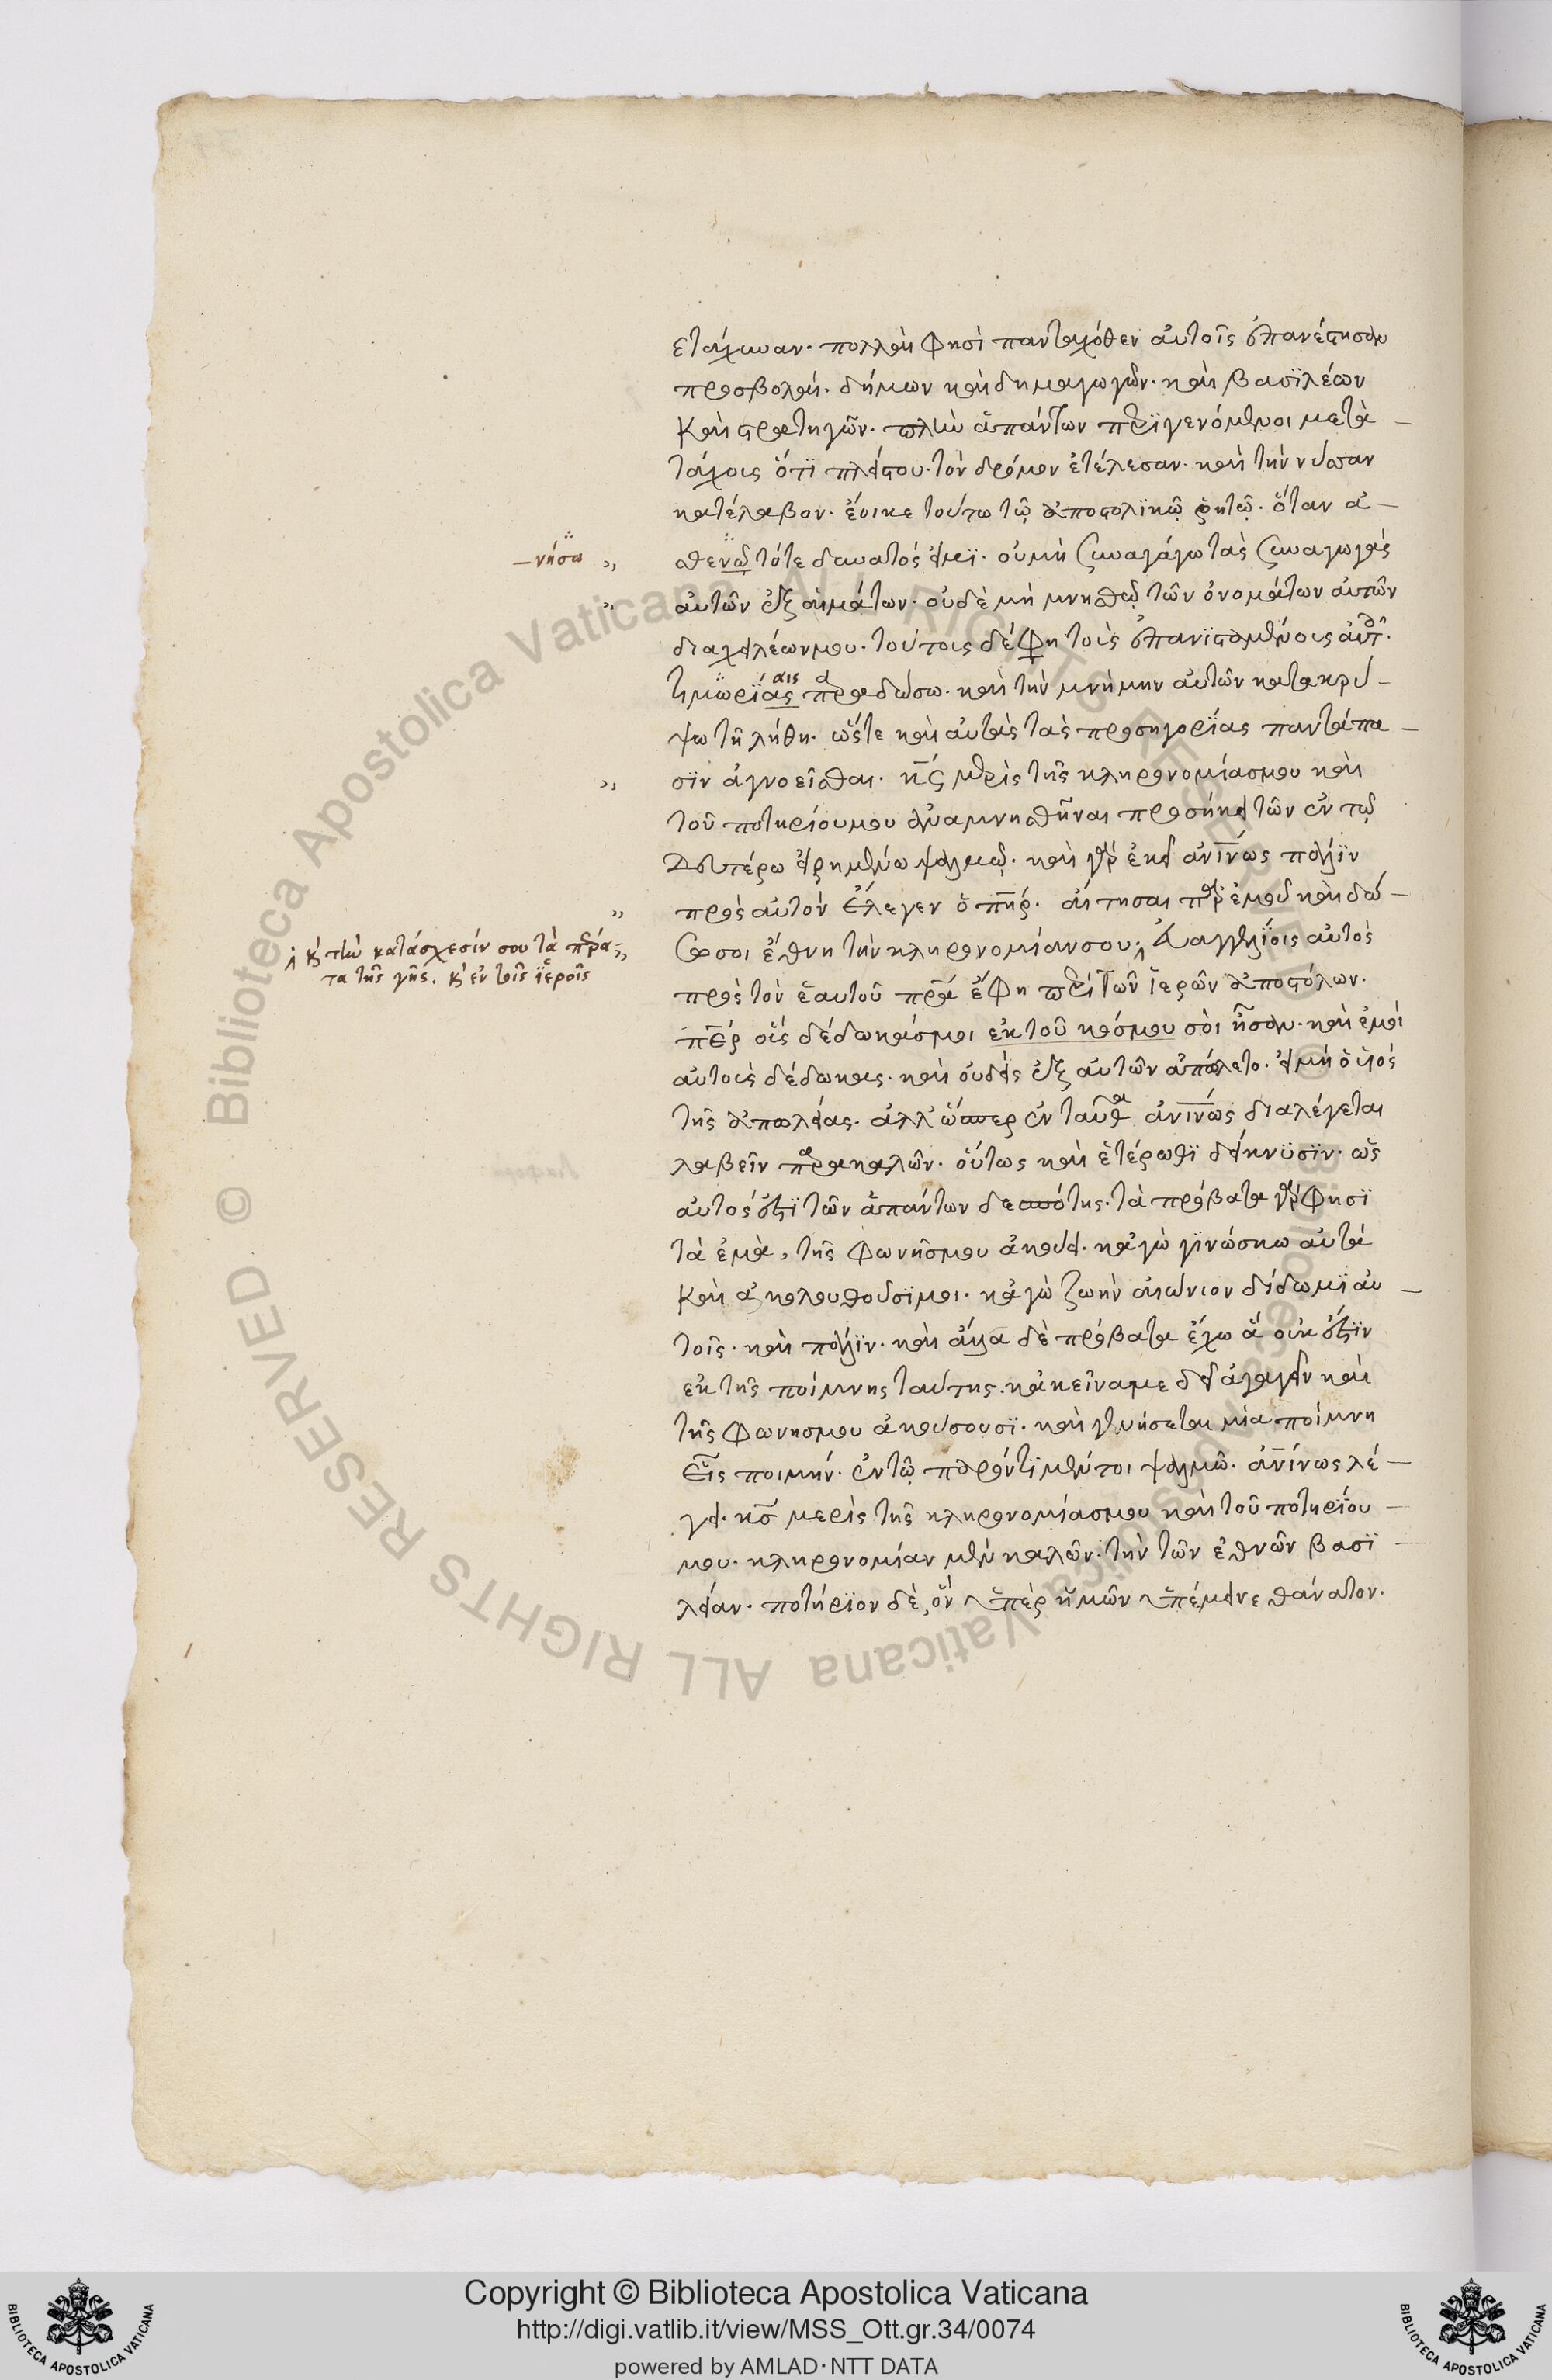 ετάχυναν. πολλαὶ φησὶ πανταχόθεν αὐτοῖς ἐπανέστησαν
προσβολαί. δήμων καὶ δημαγωγῶν. καὶ βασϊλέων
καὶ στρατηγῶν. πλὴν ἁπάντων περϊγενόμενοι μετὰ –
τάχους ὅτϊ πλείστου. τὸν δρόμον ἐτέλεσαν. καὶ τὴν νύσσαν
κατέλαβον. ἔοικε τοῦτο τῷ ἀποστολϊκῷ ῥητῷ. ὅταν ἀ –
– νήσω
σθενῶ τότε δυνατός εἰμϊ. οὐ μὴ συναγάγω τὰς συναγωγὰς
αὐτῶν ἐξ αἱμάτων. οὐδὲ μὴ μνησθῶ τῶν ὀνομάτων αὐτῶν
διαχειλέων μου. τούτοις δέ φη τοῖς ἐπανϊσταμένοις αὐτ.
τιμωρϊάς αις παραδώσω. καὶ τὴν μνήμην αὐτῶν κατακρύ –
ψω τῇ λήθῃ. ὥστε καὶ αὐτὰς τὰς προσηγορϊας παντάπα –
σϊν ἀγνοεῖσθαι. κ̅ς̅ μερὶς τῆς κληρονομίας μου καὶ
τοῦ ποτηρίου μου ἀναμνησθῆναι προσήκει τῶν ἐν τῷ
δευτέρω εἰρημένω ψαλμῷ. καὶ γὰρ ἐκεῖ ἀν̅ι̅νως πάλϊν
πρὸς αὐτὸν ἔλεγεν ὁ π̅η̅ρ. αἴτησαι παρ ἐμοῦ καὶ δώ –
σω σοι ἔθνη τὴν κληρονομίαν σου, εὐαγγελϊοις αὐτὸς
καὶ τὴν κατάσχεσίν σου τὰ πέρα-
τα τῆς γῆς. καὶ ἐν τοῖς ϊεροῖς
πρὸς τὸν ἑαυτοῦ πρᾶ ἔφη περὶ τῶν ἱερῶν ἀποστόλων.
π̅ε̅ρ οὕς δέδωκάς μοι ἐκ τοῦ κόσμου σοὶ ἦσαν. καὶ ἐμοὶ
αὐτοὺς δέδωκας. καὶ οὐδεὶς ἐξ αὐτῶν ἀπώλετο. εἰ μὴ ὁ υἱος
τῆς ἀπωλείας. ἀλλ' ὥσπερ ἐνταῦθα ἀν̅ι̅νως διαλέγεται
λαβεῖν παρακαλῶν. οὕτως καὶ ἑτέρωθϊ δείκνϋσϊν. ὡς
αὐτός ἐστϊ τῶν ἁπάντων δεσπότης. τὰ πρόβατα γάρ φησϊ
τὰ ἐμὰ, τῆς φωνῆς μου ἀκούει. κἀγὼ γϊνώσκω αὐτά
καὶ ἀκολουθοῦσϊ μοι. κἀγὼ ζωὴν αἰώνιον δίδωμϊ αὐ –
τοῖς. καὶ πάλϊν. καὶ ἄλλα δὲ πρόβατα ἔχω ἅ οὐκ ἔστϊν
ἐκ τῆς ποίμνης ταύτης. κἀκεῖνα με δεῖ ἀγαγεῖν καὶ
τῆς φωνης μου ἀκούσουσϊ. καὶ γενήσεται μία ποίμνη
εἷς ποιμήν. ἐν τῷ παρόντϊ μέντοι ψαλμῶ. ἀν̅ίνως λέ –
γει. κ̅ς̅ μερὶς τῆς κληρονομίας μου καὶ τοῦ ποτηρϊου –
μου. κληρονομίαν μὲν καλῶν. τὴν τῶν ἐθνῶν βασϊ –
λείαν. ποτήριον δὲ, ὅν ὑπὲρ ἡμῶν ὑπέμεινε θάνατον.
© Biblioteca Apostolica Vaticana ALL RIGHTS RESERVED
Copyright © Biblioteca Apostolica Vaticana
http://digi.vatlib.it/view/MSS_Ott.gr.34/0074
powered by AMLAD·NTT DATA
BIBLIOTECA APOSTOLICA VATICANA
BIBLIOTECA APOSTOLICA VATICANA